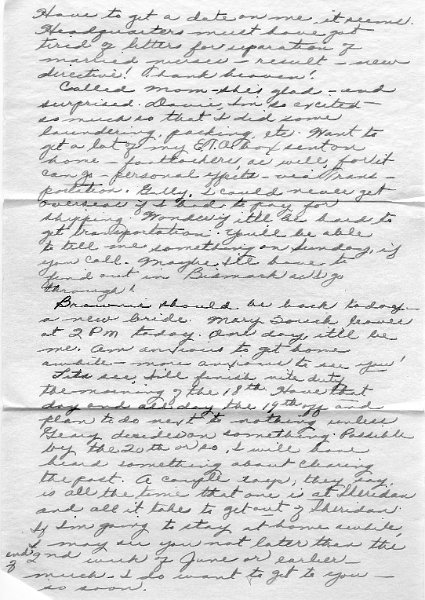 Have to get a date on me, it seems.
Headquarters must have got
tired of letters for separation of
married nurses - result - new
directive! Thank heaven!
Called Mom - she's glad - and
surprised. Davie, I'm so excited -
so much so that I did some
laundering, packing, etc. Want to
get a lot of my E.T.O. box sent on
home - footlockers, as well, for it
can go - personal effects - via Trans-
portation. Golly, I could never get
overseas if I had to pay for
shipping. Wonder if it'll be hard to
get transportation. You'll be able
to tell me something on Sunday, if
you call. Maybe I'll have to
find out in Bismarck as I go
through!
Brownie should be back today -
a new bride. Mary leaves
at 2 PM today. One day, it'll be
me. Am anxious to get home
awhile - more anxious to see you!
Lets see, I'll finish nite duty
the morning of the 18th. Have that
day and all day the 19th off and
plan to do next to nothing unless
Geary decides on something. Possible
by the 20th or so, I will have
heard something about clearing
the post. A couple days, they say,
is all the time that one is at Sheridan
and all it takes to get out of Sheridan.
If I'm going to stay at home awhile,
I may see you not later than the
end of 2nd week of June or earlier -
much. I do want to get to you -
so soon.